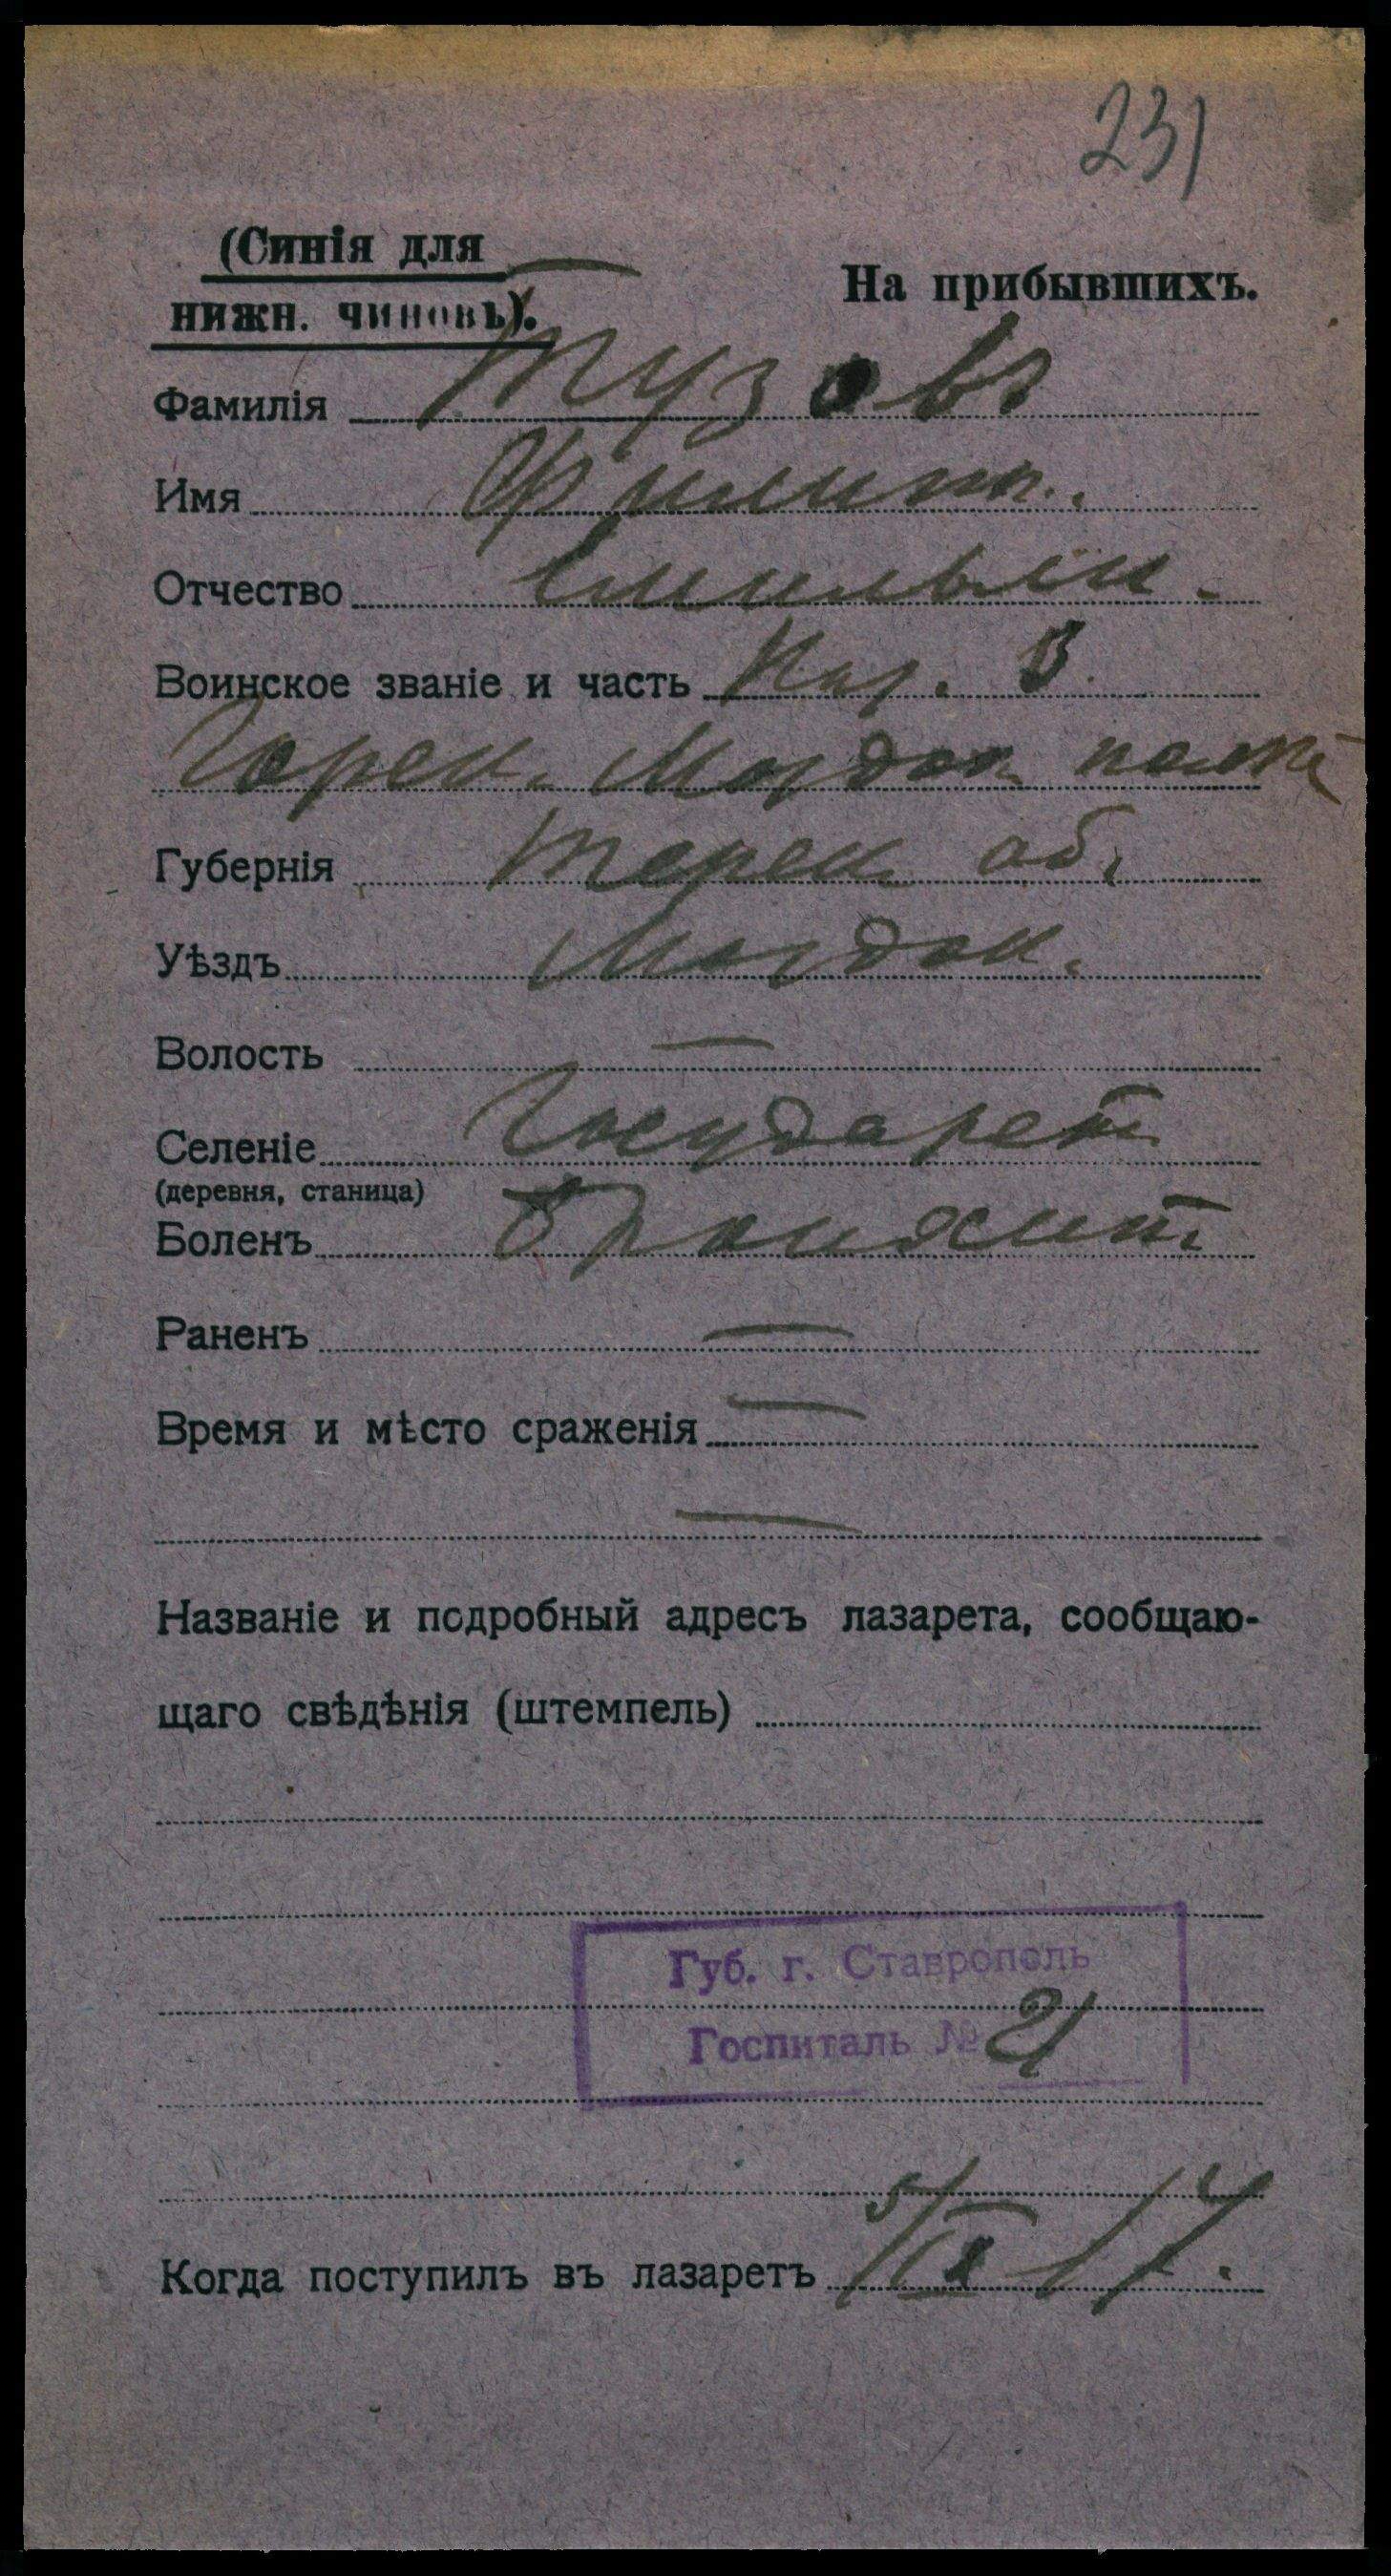 231
(Синія для
нижн. чиновъ).
На прибывшихъ.
Фамилія Тузовъ
Имя Филиппъ.
Отчество Емельян.
Воинское званіе и часть Каз. 3
Горск. Моздок. полка
Губернія Терск. об.
Уѣздъ Моздок.
Волость —
Селеніе Государст.
(деревня, станица)
Боленъ Бронхит.
Раненъ —
Время и мѣсто сраженія —
—
Названіе и подробный адресъ лазарета, сообщаю-
щаго свѣдѣнія (штемпель)
Губ. г. Ставрополь
Госпиталь № 21
Когда поступилъ въ лазаретъ 5/IX 17.